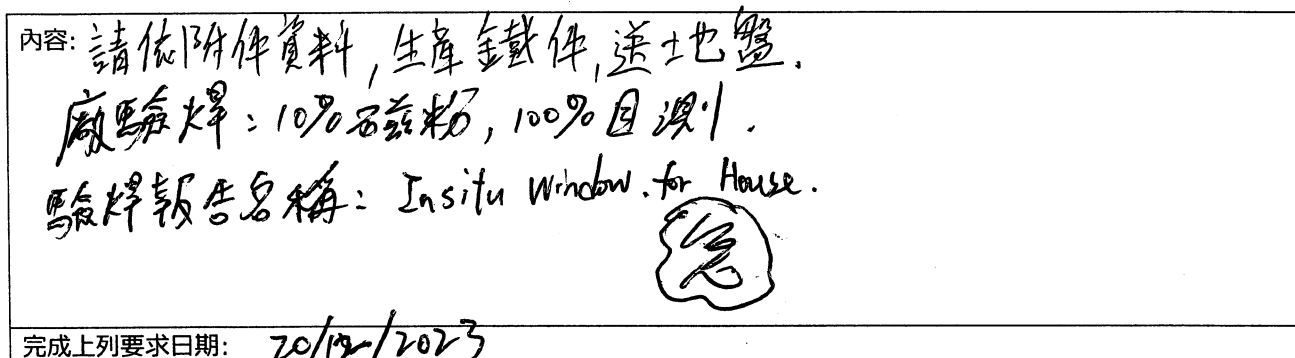 內容: 請依附件資料, 生產鐵件, 送地盤.
廠驗焊: 10%磁粉, 100%目測.
驗焊報告名稱: Insitu Window. for House.
急
完成上列要求日期: 20/12/2023